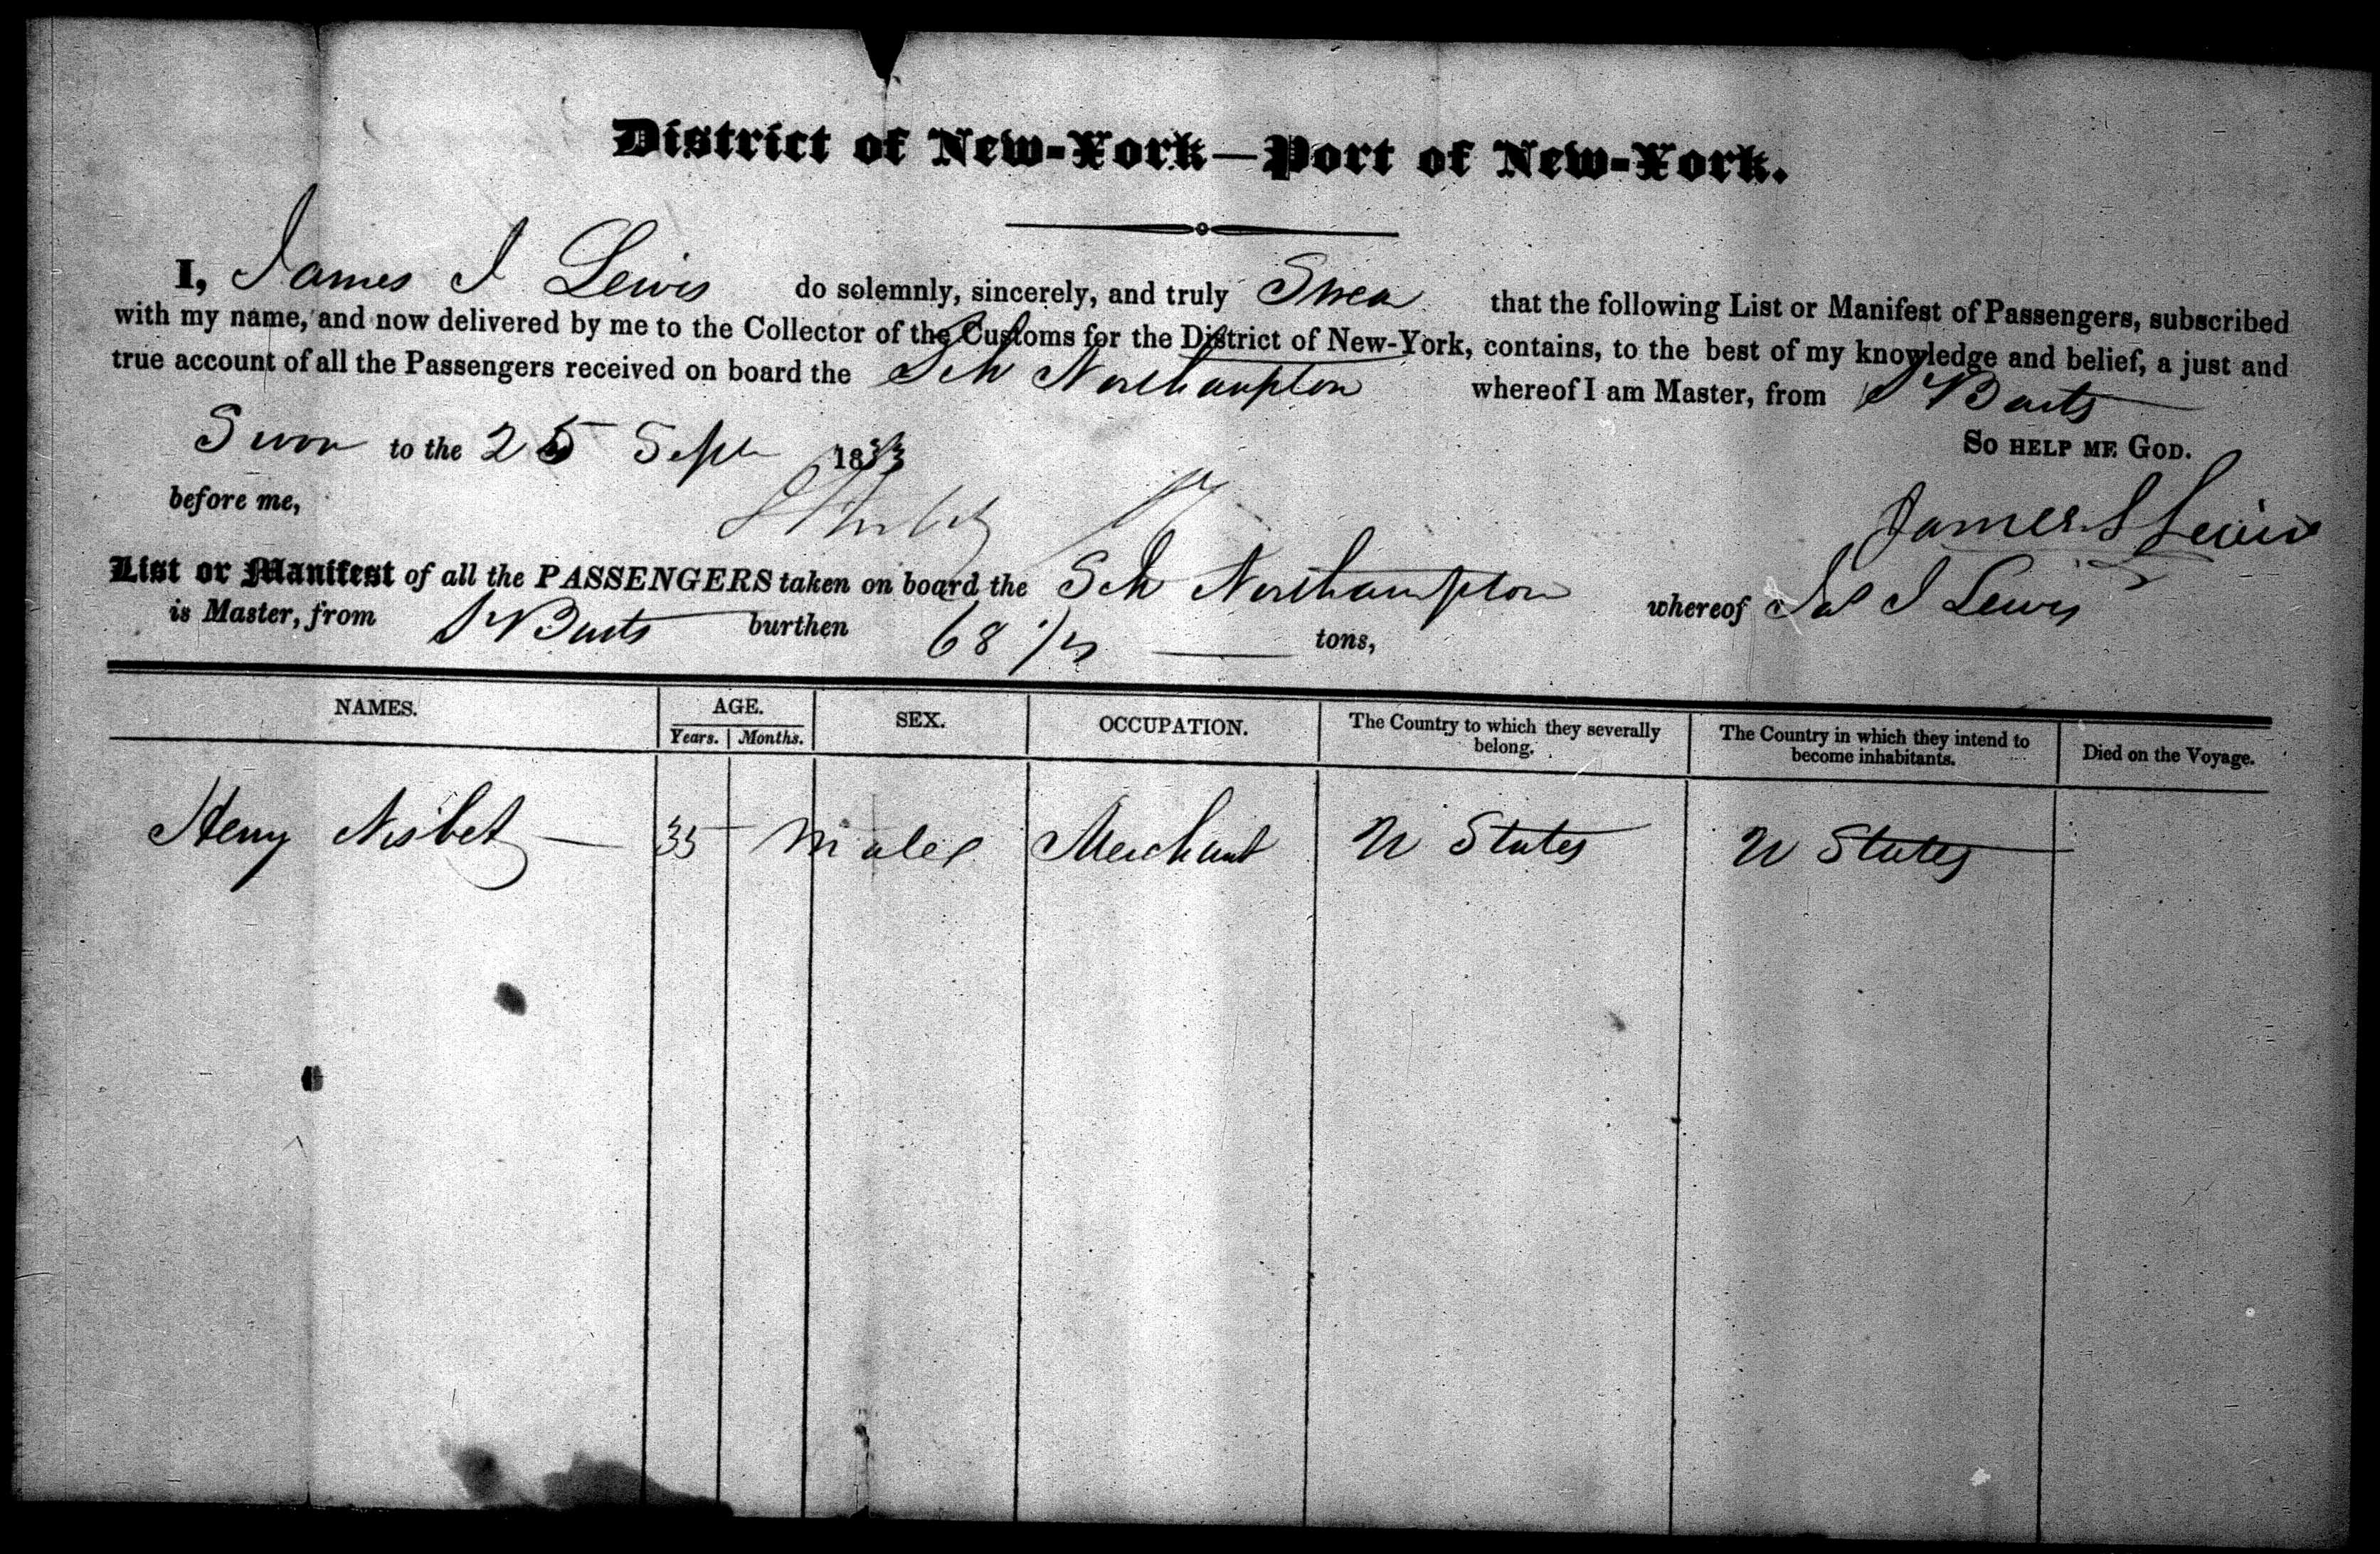 District of New-York—Port of New-York.
I, James J Lewis do solemnly, sincerely, and truly Swea that the following List or Manifest of Passengers, subscribed
with my name, and now delivered by me to the Collector of the Customs for the District of New-York, contains, to the best of my knowledge and belief, a just and
true account of all the Passengers received on board the Sch Northampton whereof I am Master, from St Barts
Sworn to the 25 Sept 1833
So help me God.
before me,
James J Lewis
List or Manifest of all the PASSENGERS taken on board the Sch Northampton whereof Jas J Lewis
is Master, from St Barts burthen 68 tons,
NAMES. AGE. SEX. OCCUPATION. The Country to which they severally belong. The Country in which they intend to become inhabitants. Died on the Voyage.
Years. Months.
Henry Nisbet 35 Male Merchant U States U States